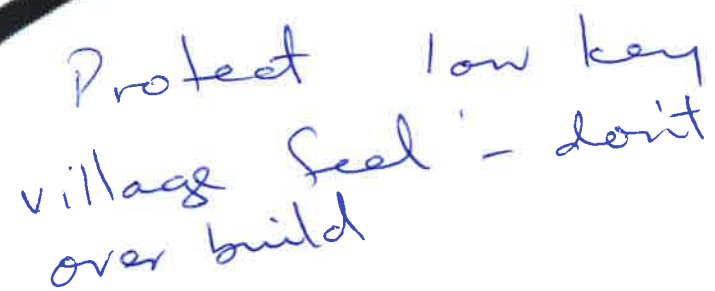 Protect low key
village feel - don't
over build